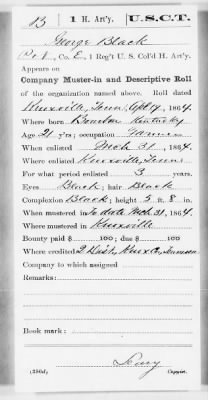 B | 1 H. Art'y. | U.S.C.T.
George Black
Pvt, Co. E, 1 Reg't U. S. Col'd H. Art'y.
Appears on
Company Muster-in and Descriptive Roll
of the organization named above. Roll dated
Knoxville, Tenn, Apl 4, 1864.
Where born Kentucky
Age 21 y'rs; occupation Farmer
When enlisted Mch 31, 1864.
Where enlisted Knoxville, Tenn
For what period enlisted 3 years.
Eyes Black; hair Black
Complexion Black; height 5 ft. 8 in.
When mustered in To date Mch 31, 1864.
Where mustered in Knoxville
Bounty paid $ 100; due $ 100
Where credited 2 Dist, Knox Co, Tennessee
Company to which assigned
Remarks:
Book mark:
Copyist.